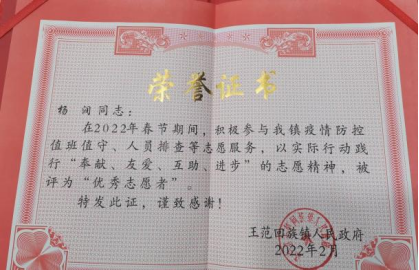 荣誉证书
杨 润同志:
在2022年春节期间,积极参与我镇疫情防控
值班值守、人员排查等志愿服务,以实际行动践
行“奉献、友爱、互助、进步”的志愿精神,被
评为“优秀志愿者”。
特发此证,谨致感谢!
王范回族镇人民政府
2022年2月